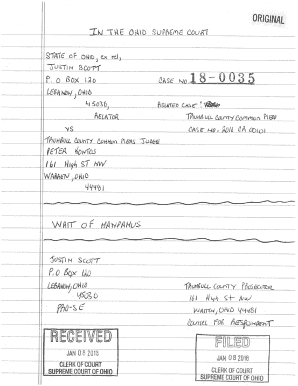 ORIGINAL
IN THE OHIO SUPREME COURT
STATE OF OHIO, ex rel,
JUSTIN SCOTT
P.O BOX 120 CASE NO. 18-0035
LEBANON, OHIO
45030, RELATED CASE:
RELATOR TRUMBULL COUNTY COMMON PLEAS
VS CASE NO. 2011 CR
TRUMBULL COUNTY COMMON PLEAS JUDGE
PETER KONTOS
161 HIGH ST NW
WARREN, OHIO
44481
WRIT OF MANDAMUS
JUSTIN SCOTT
P.O BOX 120
LEBANON, OHIO TRUMBULL COUNTY PROSECUTOR
45030 161 HIGH ST NW
PRO-SE WARREN, OHIO 44481
COUNSEL FOR RESPONDENT
RECEIVED
JAN 08 2018
CLERK OF COURT
SUPREME COURT OF OHIO
FILED
JAN 08 2018
CLERK OF COURT
SUPREME COURT OF OHIO